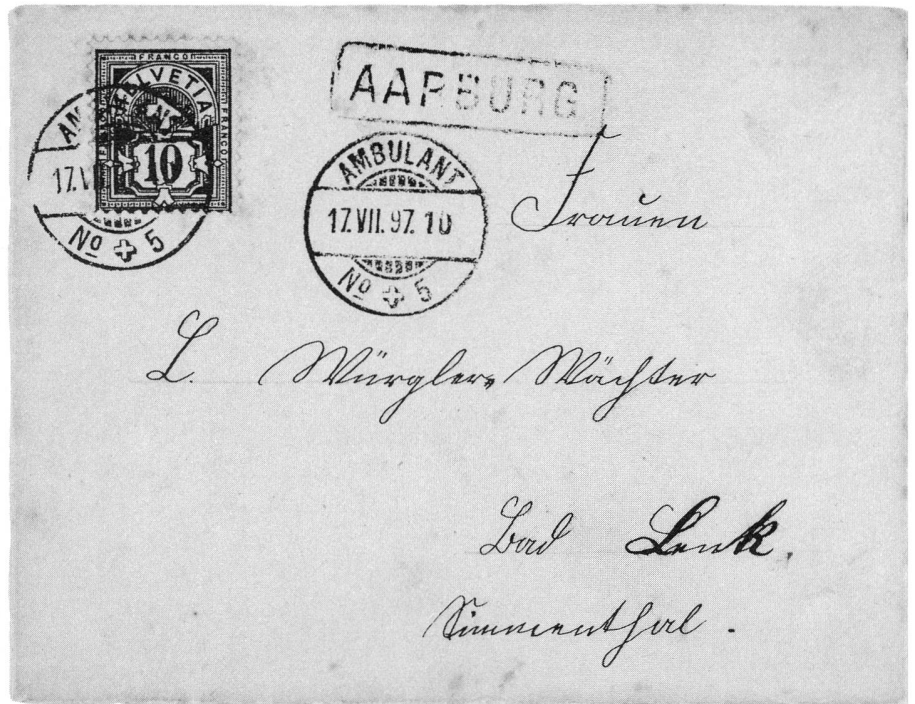 FRANCO
HELVETIA
FRANCO
10
AM
17.VI
No 5
AARBURG
AMBULANT
17.VII.97. 10
No 5
Frauen
L. Würgler-Wächter
Bad Lenk.
Simmenthal.